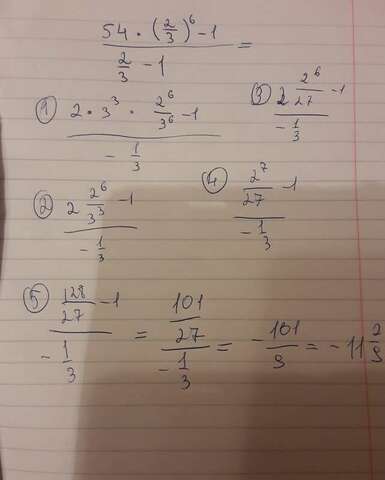 54 · (2/3)^6 - 1 / 2/3 - 1 =
① 2 · 3^3 · 2^6/3^6 - 1 / - 1/3
③ 2 2^6/27 - 1 / - 1/3
② 2 2^6/3^3 - 1 / - 1/3
④ 2^7/27 - 1 / - 1/3
⑤ 128/27 - 1 / - 1/3 = 101/27 / - 1/3 = - 101/9 = - 11 2/9